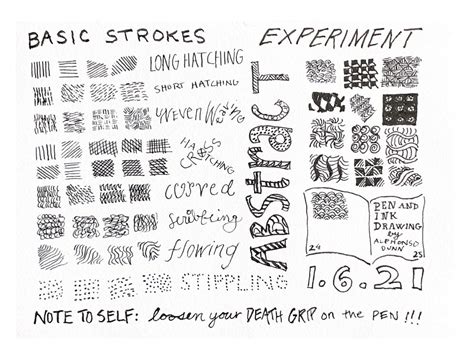 BASIC STROKES
EXPERIMENT
LONG HATCHING
SHORT HATCHING
UNEVEN WAVING
CROSS
HATCHING
curved
scribbling
flowing
STIPPLING
ABStract
PEN AND
INK
DRAWING
by
ALPHONSO
DUNN
24
25
1.6.21
NOTE TO SELF: loosen your DEATH GRIP on the PEN !!!